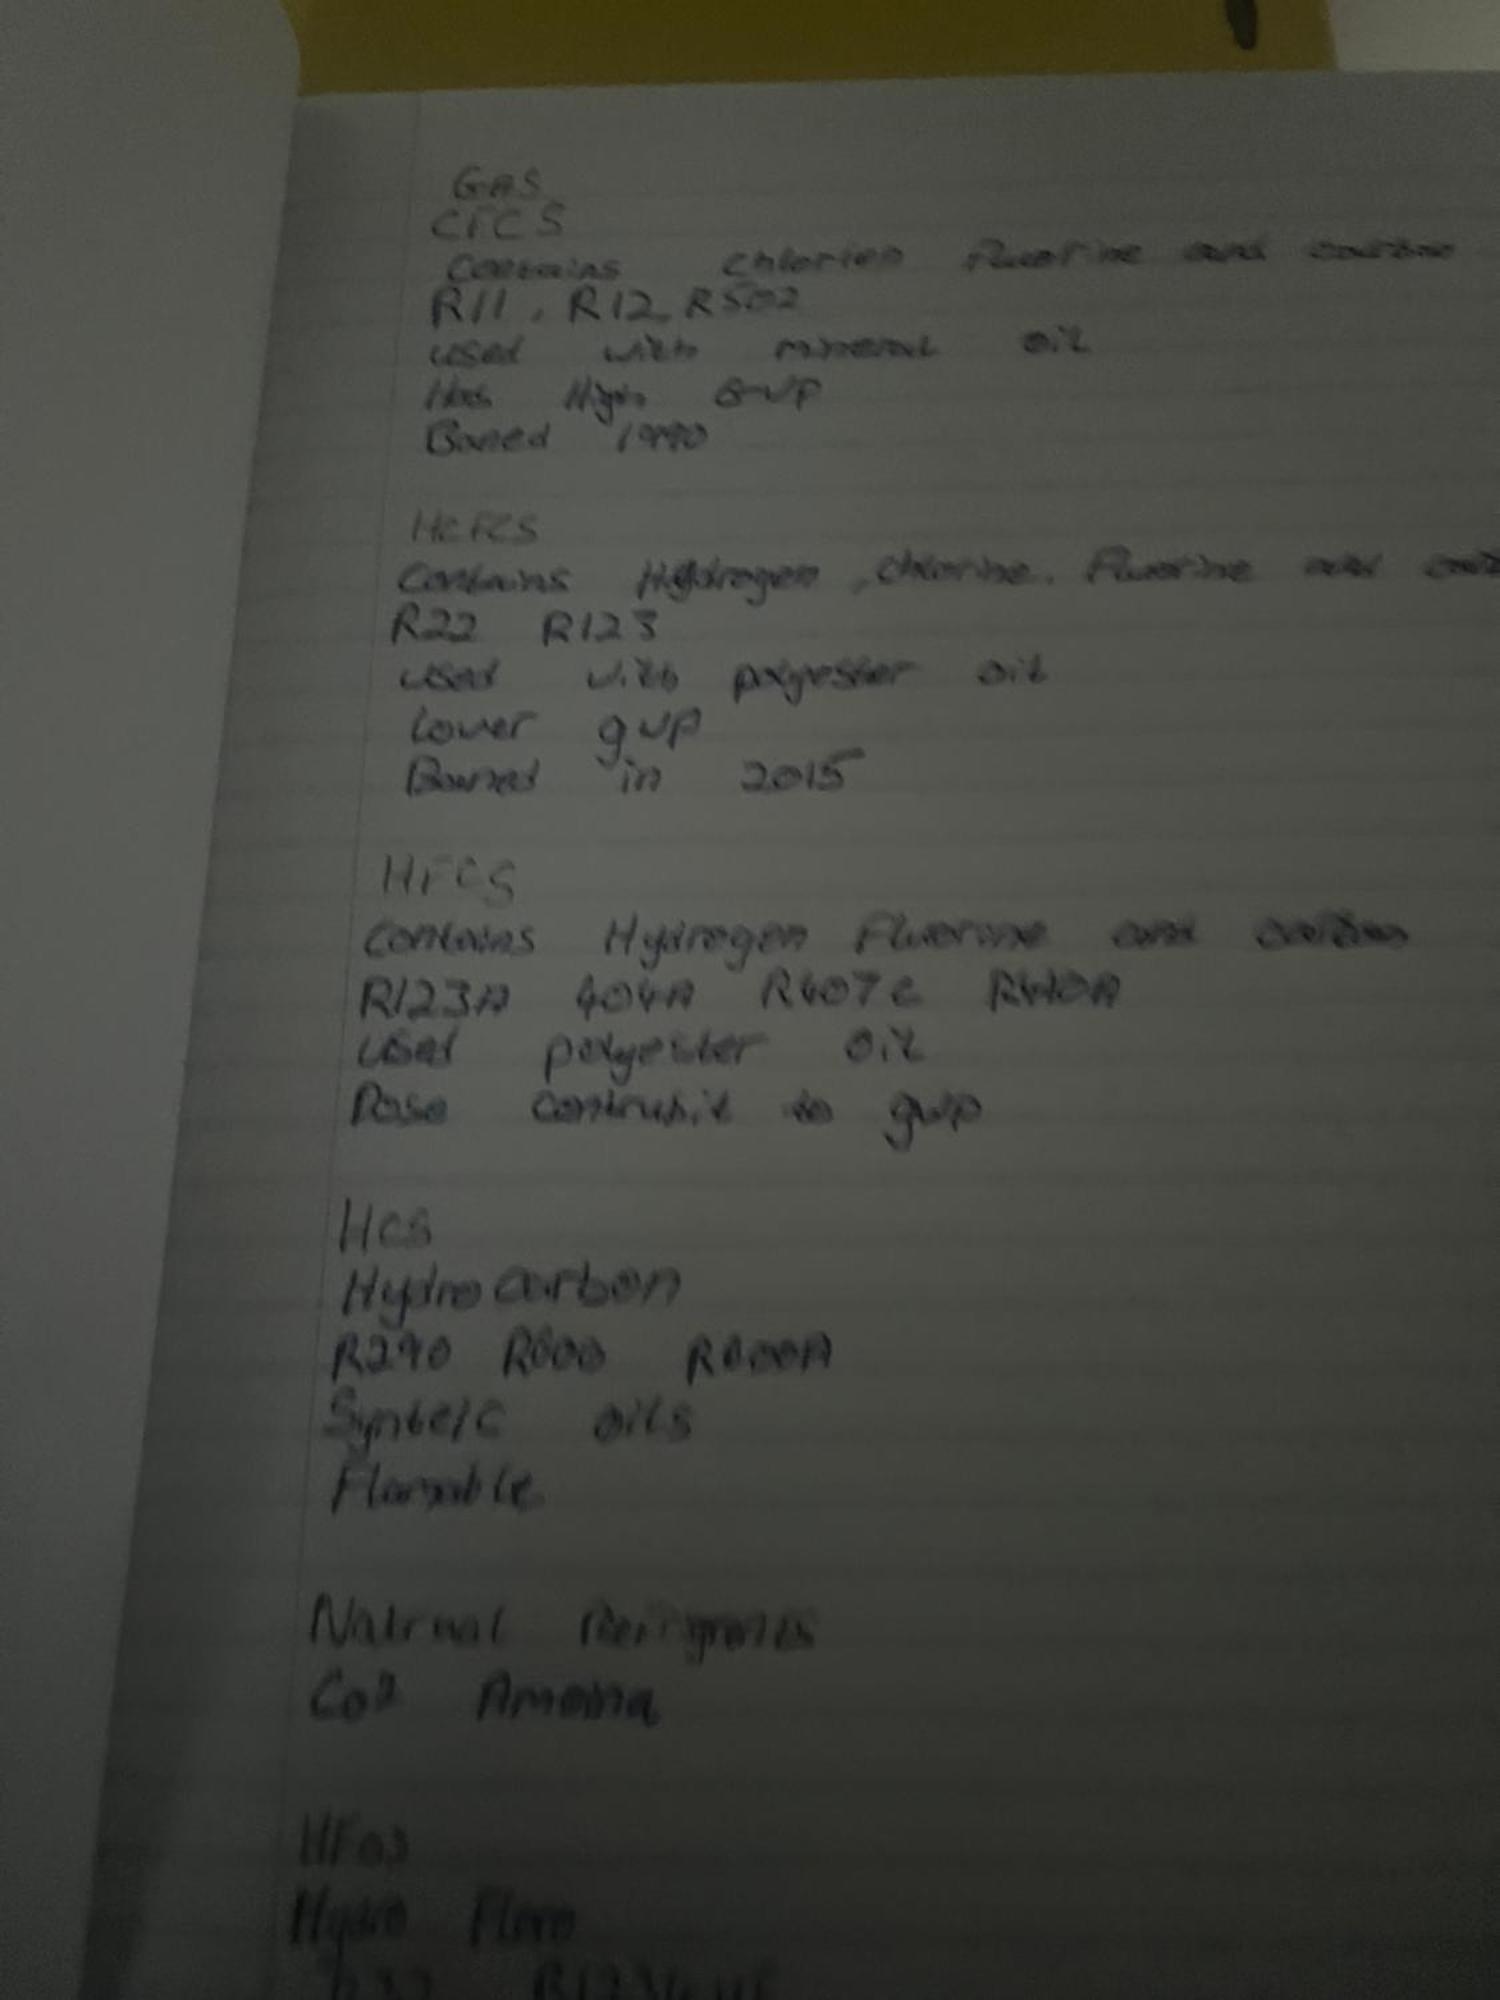 GAS
CFCS
Contains chlorien fluorine and carbon
R11, R12 R502
used with mineral oil
Has High GWP
Baned 1990
HCFCS
Contains Hydrogen, chlorine, Fluorine and
R22 R123
used with polyester oil
Lower gwp
Banned in 2015
HFCS
Contains Hydrogen Fluorine and carbon
R123A 404A R407C R410A
used polyester oil
Dose contrubit to gwp
HCS
Hydrocarbon
R290 R600 R600A
Syntetc oils
Flamable
Natrual
Co2
HFOs
Hydro Floro